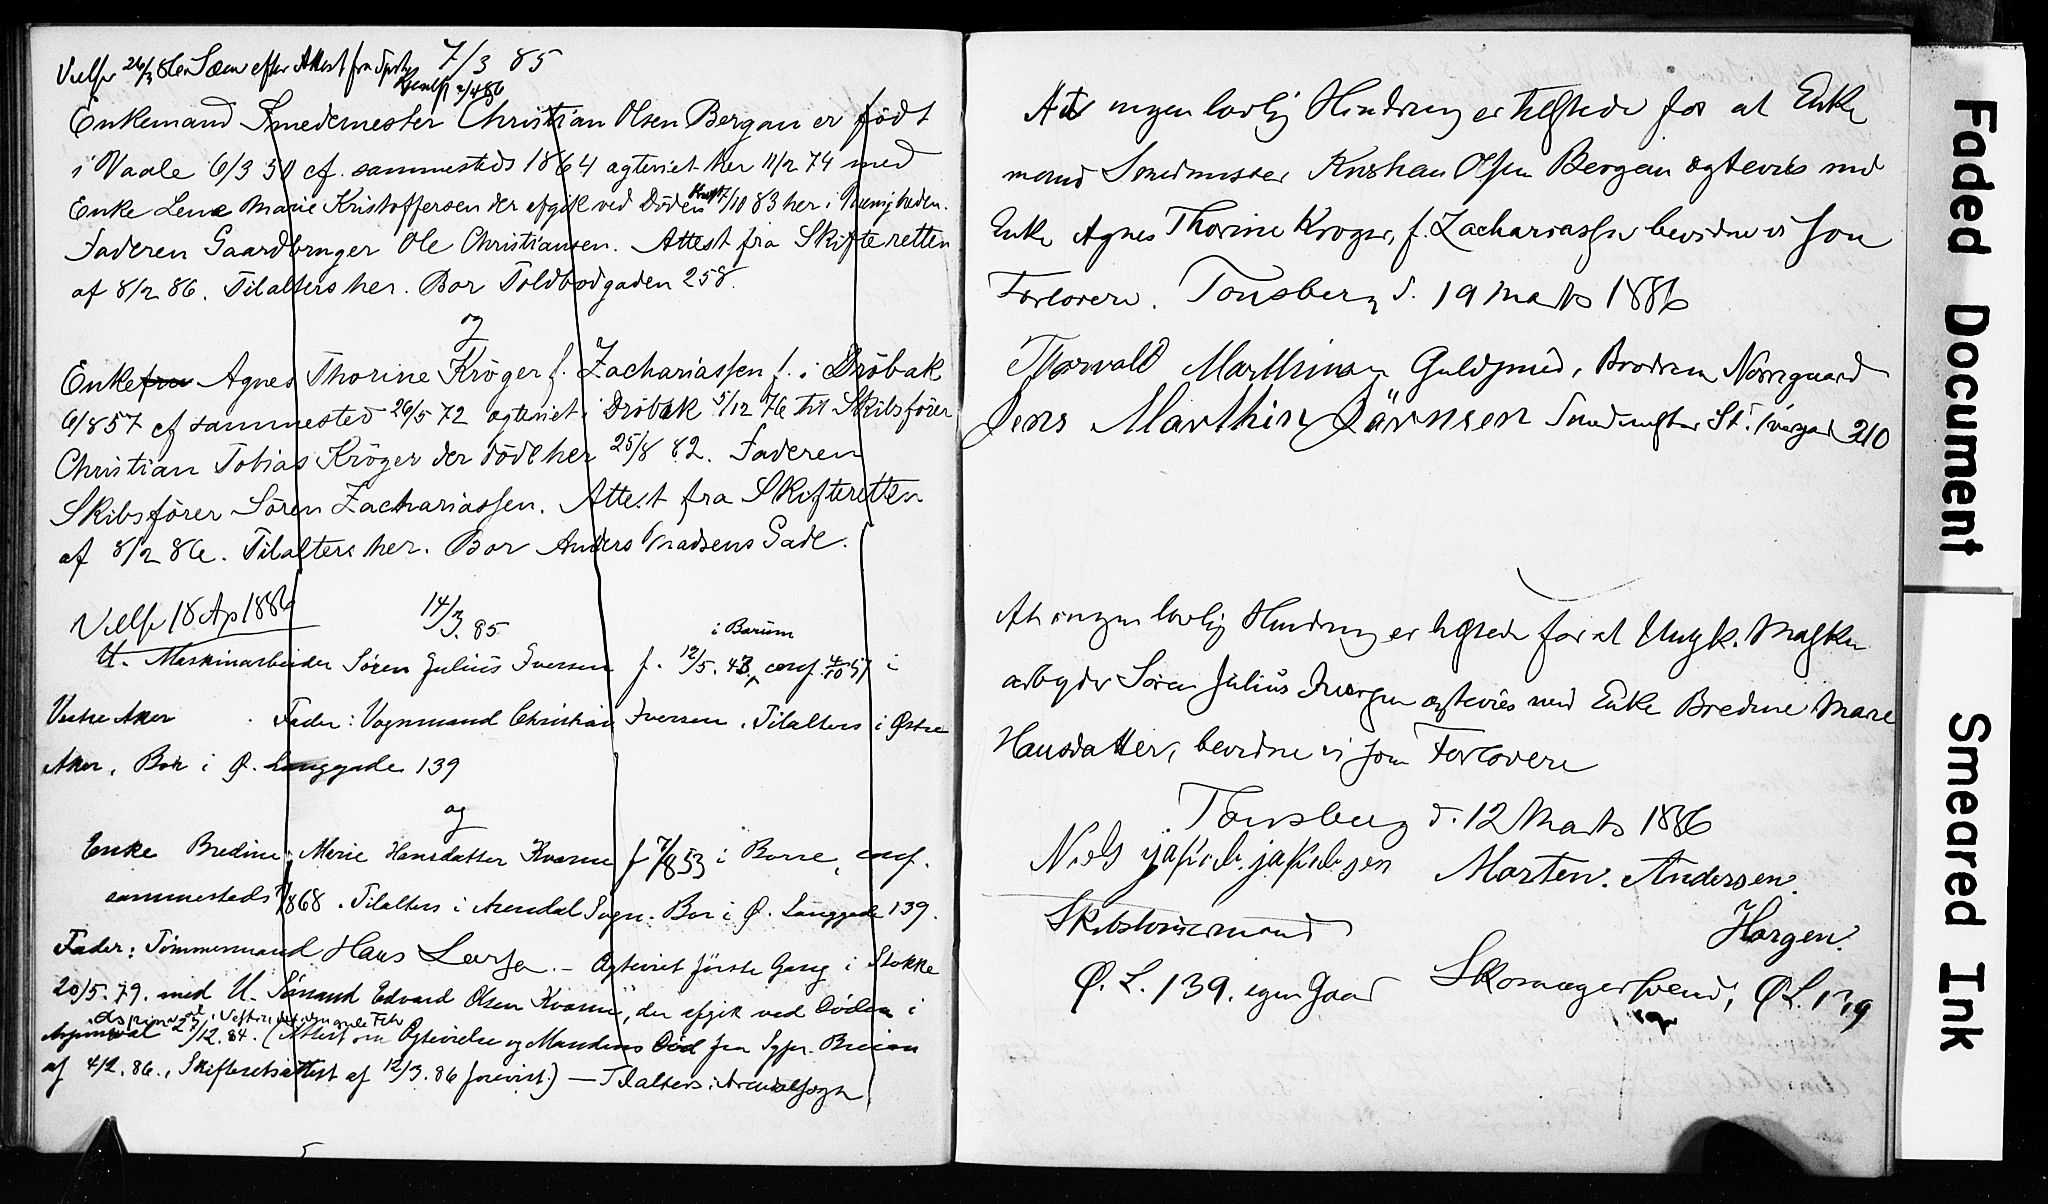 Vielse 26/3 86 i Sem efter Attest fra Sprt
7/3 85
Enkemand Smedemester Christian Olsen Bergan er født
i Vaale 6/3 50 cf. sammesteds 1864 ægteviet her 11/2 74 med
Enke Lene Marie Kristoffersen der afgik ved Døden 7/10 83 her i Menigheden.
Faderen Gaardbruger Ole Christiansen. Attest fra Skifteretten
af 8/2 86. Tilalters her. Bor Toldbodgaden 258.
og
Enkefru Agnes Thorine Krøger f. Zachariassen f. i Drøbak
6/8 57 cf sammested 26/5 72 ægteviet i Drøbak 5/12 76 til Skibsfører
Christian Tobias Krøger der døde her 25/8 82. Faderen
Skibsfører Søren Zachariassen. Attest fra Skifteretten
af 8/2 86. Tilalters her. Bor Anders Madsens Gade.
Vielse 18 Ap 1886
14/3. 85
i Bærum
U. Maskinarbeider Søren Julius Iversen f. 12/5. 43, conf. 4/10 57 i
Vestre Aker . Fader: Vognmand Christian Iversen. Tilalters i Østre
Aker, Bor i Ø. Langgade 139
og
Enke Bredine Marie Hansdatter Kvarne f 7/8 53 i Borre, conf.
sammesteds 1868. Tilalters i Arendal Sogn. Bor i Ø. Langgade 139.
Fader: Tømmermand Hans Larsen. – Ægteviet første Gang i Stokke
20/5. 79. med U. Sømand Edvard Olsen Kvarne, der afgik ved Døden i
27/12. 84. (Attest om Ægtevielse og Mandens Død fra Sgpr.
af 4/2. 86., Skifteretsattest af 12/3. 86 forevist.) – Tilalters i Arendal sogn
At ingen lovlig Hindring er tilstede for at Enke
mand Smedmester Kristian Olsen Bergan ægtevies med
Enke Agnes Thorine Krøger, f. Zachariassen bevidne vi som
Forlovere. Tønsberg d. 19 Marts 1886
Thorvald Marthinsen Guldsmed, Brødrene Nørregaard
Jens Marthin Sørensen Smedmester St. Ivergad 210
At ingen lovlig Hindring er tilstede for at Ungk. Maskin
arbejder Søren Julius Iversen ægtevies med Enke Bredine Marie
Hansdatter, bevidne vi som Forlovere
Tønsberg d. 12 Marts 1886
Niels jakob. jakobsen Morten. Andersen.
Skibstømermand Horgen.
Ø. L. 139. egen Gaard Skomagersvend, Ø L. 139
Faded Document
Smeared Ink